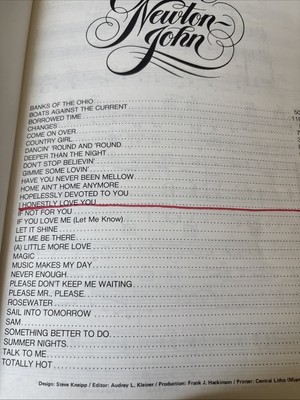 Newton-
John
BANKS OF THE OHIO
BOATS AGAINST THE CURRENT
BORROWED TIME
CHANGES
COME ON OVER
COUNTRY GIRL
DANCIN' 'ROUND AND 'ROUND
DEEPER THAN THE NIGHT
DON'T STOP BELIEVIN'
GIMME SOME LOVIN'
HAVE YOU NEVER BEEN MELLOW
HOME AIN'T HOME ANYMORE
HOPELESSLY DEVOTED TO YOU
I HONESTLY LOVE YOU
IF NOT FOR YOU
IF YOU LOVE ME (Let Me Know)
LET IT SHINE
LET ME BE THERE
(A) LITTLE MORE LOVE
MAGIC
MUSIC MAKES MY DAY
NEVER ENOUGH
PLEASE DON'T KEEP ME WAITING
PLEASE MR., PLEASE
ROSEWATER
SAIL INTO TOMORROW
SAM
SOMETHING BETTER TO DO
SUMMER NIGHTS
TALK TO ME
TOTALLY HOT
Design: Steve Kneipp / Editor: Audrey L. Kleiner / Production: Frank J. Hackinson / Printer: Central Litho